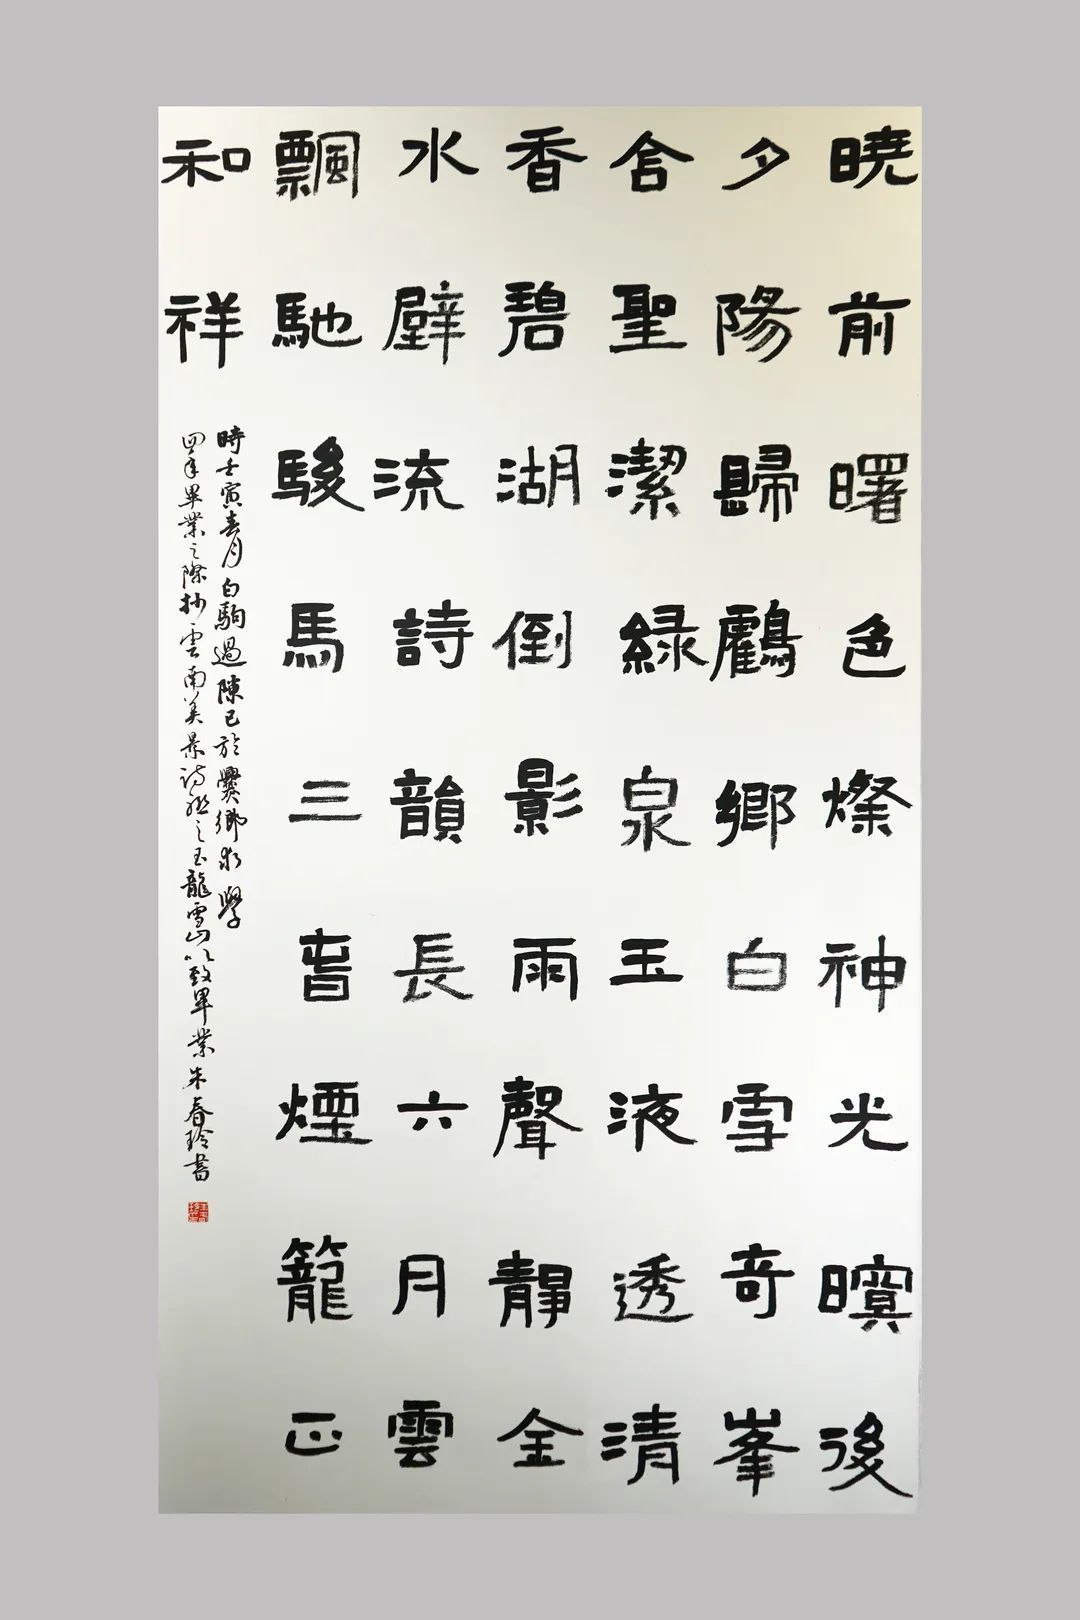 曉前曙色燦神光暝後
夕陽歸鶴鄉白雪奇峯
含聖潔綠泉玉液透清
香碧湖倒影雨聲靜金
水壁流詩韻長六月雲
飄馳駿馬三春煙籠正
和祥
時壬寅春月白駒過隙已於爨鄉求學
四年畢業之際抄雲南美景詩聯之玉龍雪山以致畢業朱春玲書